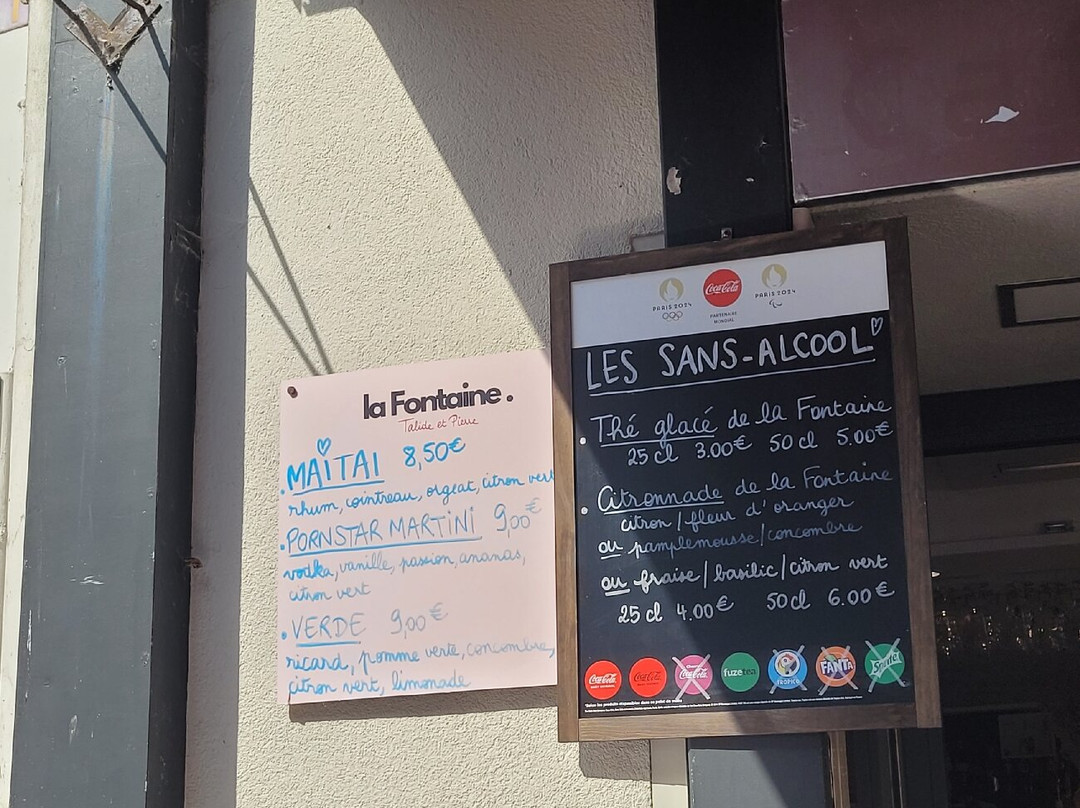 la Fontaine.
Talide et Pierre
MAITAI 8,50€
rhum, cointreau, orgeat, citron vert
PORNSTAR MARTINI 9,00€
vodka, vanille, passion, ananas,
citron vert
VERDE 9,00€
ricard, pomme verte, concombre,
citron vert, limonade
PARIS 2024
Coca-Cola
PARTENAIRE
MONDIAL
PARIS 2024
LES SANS-ALCOOL
Thé glacé de la Fontaine
25 cl 3.00€ 50 cl 5.00€
Citronnade de la Fontaine
citron / fleur d'oranger
ou pamplemousse/concombre
ou fraise / basilic / citron vert
25 cl 4.00€ 50 cl 6.00€
Coca-Cola
Coca-Cola
Coca-Cola
fuzetea
TROPICO
FANTA
Sprite